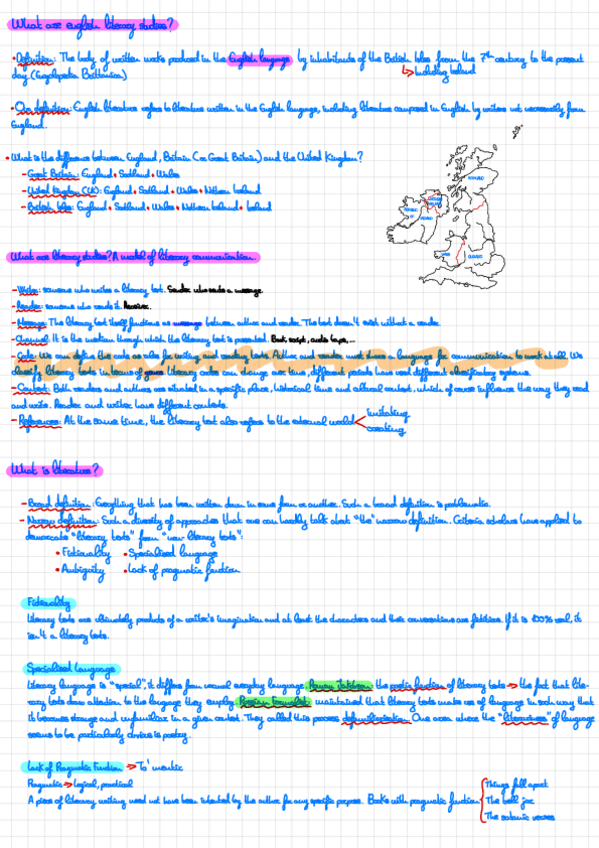 What are english literary studies?
• Definition: The body of written works produced in the English language by inhabitants of the British Isles from the 7th century to the present
day (Encyclopedia Britannica)
↳ including Ireland
• Our definition: English literature refers to literature written in the English language, including literature composed in English by writers not necessarily from
England.
• What is the difference between England, Britain (or Great Britain) and the United Kingdom?
- Great Britain: England • Scotland • Wales
- United Kingdom (UK): England • Scotland • Wales • Northern Ireland
- British Isles: England • Scotland • Wales • Northern Ireland • Ireland
SCOTLAND
IRELAND
WALES
ENGLAND
What are literary studies? A model of literary communication
- Writer: someone who writes a literary text. Sender who sends a message.
- Reader: someone who reads it. Receiver.
- Message: The literary text itself functions as message between author and reader. The text doesn't exist without a reader.
- Channel: It is the medium through which the literary text is presented. Book, script, audio tape,...
- Code: We use signs, the code, as rules for writing and reading texts. Author and reader must share a language for communication to work at all. We
classify literary texts in terms of genres. Literary genres change over time, different periods have used different classificatory systems.
- Context: Both readers and authors are situated in a specific place, historical time and cultural context, which of course influence the way they read
and write. Reader and writer have different contexts.
- References: At the same time, the literary text also refers to the external world
imitating
creating
What is literature?
- Broad definition: Everything that has been written down in some form or another. Such a broad definition is problematic.
- Narrow definition: Such a diversity of approaches that one can hardly talk about "the" narrow definition. Criteria scholars have applied to
demarcate "literary texts" from "non-literary texts":
• Fictionality • Specialised language
• Ambiguity • Lack of pragmatic function
Fictionality
Literary texts are ultimately products of a writer's imagination and at least the characters and their conversations are fictitious. If it is 100% real, it
isn't a literary texts.
Specialised Language
Literary language is "special", it differs from normal everyday language. Roman Jakobson: the poetic function of literary texts → the fact that lite-
rary texts draw attention to the language they employ. Russian Formalists: maintained that literary texts make use of language in such way that
it becomes strange and unfamiliar in a given context. They called this process defamiliarization. One area where the "literariness" of language
seems to be particularly obvious is poetry.
Lack of Pragmatic Function →
Pragmatic → logical, practical
A piece of literary writing need not have been intended by the author for any specific purpose. Books with pragmatic function
Things fall apart
The bell jar
The satanic verses